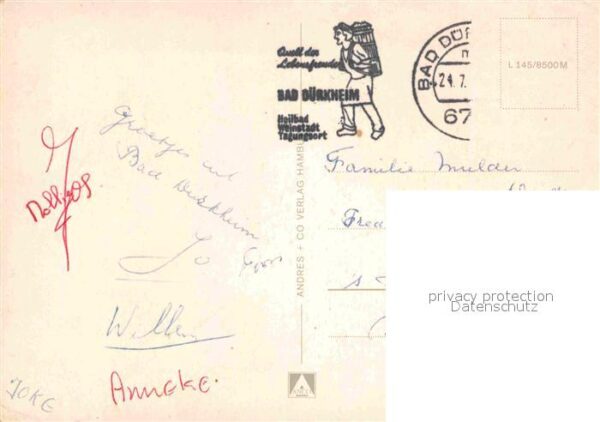 Quell der
Lebensfreude
BAD DÜRKHEIM
Heilbad
Weinstadt
Tagungsort
BAD DÜR
24.7.
67
L 145/8500M
Groetjes uit
Bad Dürkheim
Jo
Willem
Anneke.
JOKE
ANDRES + CO VERLAG HAMBU
Familie Mulder
Fred
privacy protection
Datenschutz